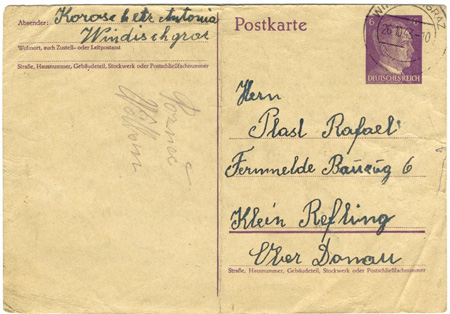 Absender: Korose hetr Antonia
Windischgraz
Wohnort, auch Zustell- oder Leitpostamt
Straße, Hausnummer, Gebäudeteil, Stockwerk oder Postschließfachnummer
Postkarte
6
DEUTSCHES REICH
Herrn
Plast Rafael
Fernmelde Bauzug 6
Klein Refling
Ober Donau
Straße, Hausnummer, Gebäudeteil, Stockwerk oder Postschließfachnummer